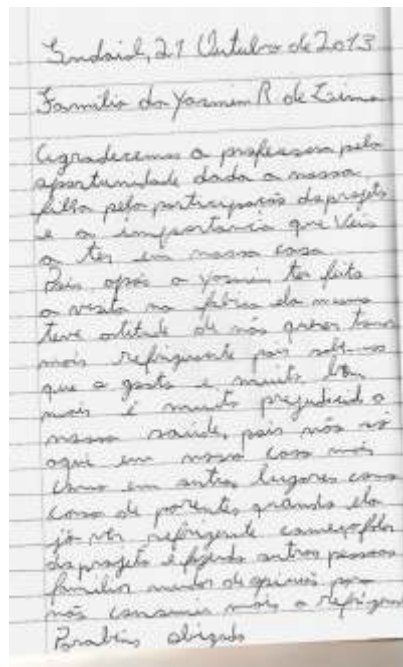 Indaial, 21 Outubro de 2013
Familia da Yasmim R de Lima
Agradecemos a professora pela
oportunidade dada a nossa
filha pela participação do projeto
e a importancia que veis
a ter em nossa casa
Pois após a Yasmim ter feito
a visita na fabrica ela mesma
teve atitude de não querer tomar
mais refrigerante pois sabemos
que o gosto e muito bom
mais é muito prejudicial a
nossa saúde, pois não só
aqui em nossa casa mais
como em outros lugares como
casa de parentes quando ela
já ver refrigerente começo falar
do projeto e fazendo outras pessoas
familior mudar de opinião para
não consumir mais o refrigerante
Parabéns obrigado